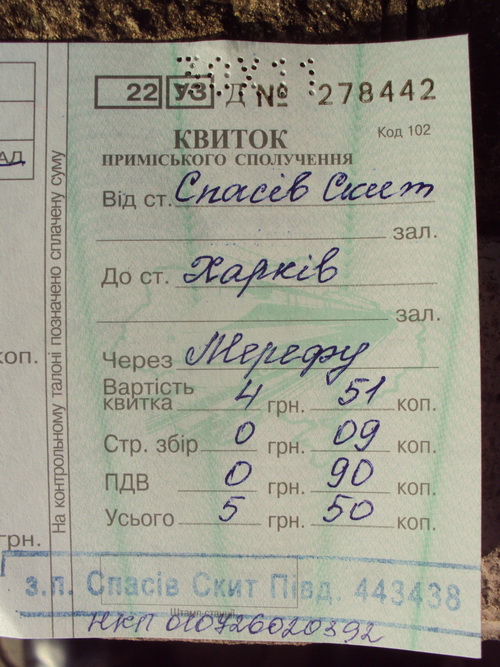 22 УЗ Д № 278442
КВИТОК Код 102
ПРИМІСЬКОГО СПОЛУЧЕННЯ
Від ст. Спасів Скит
зал.
До ст. Харків
зал.
Через Мерефу
Вартість
квитка 4 грн. 51 коп.
Стр. збір 0 грн. 09 коп.
ПДВ 0 грн. 90 коп.
Усього 5 грн. 50 коп.
з.п. Спасів Скит Півд. 443438
Штамп станції
НКП 010726020392
На контрольному талоні позначено сплачену суму
коп.
грн.